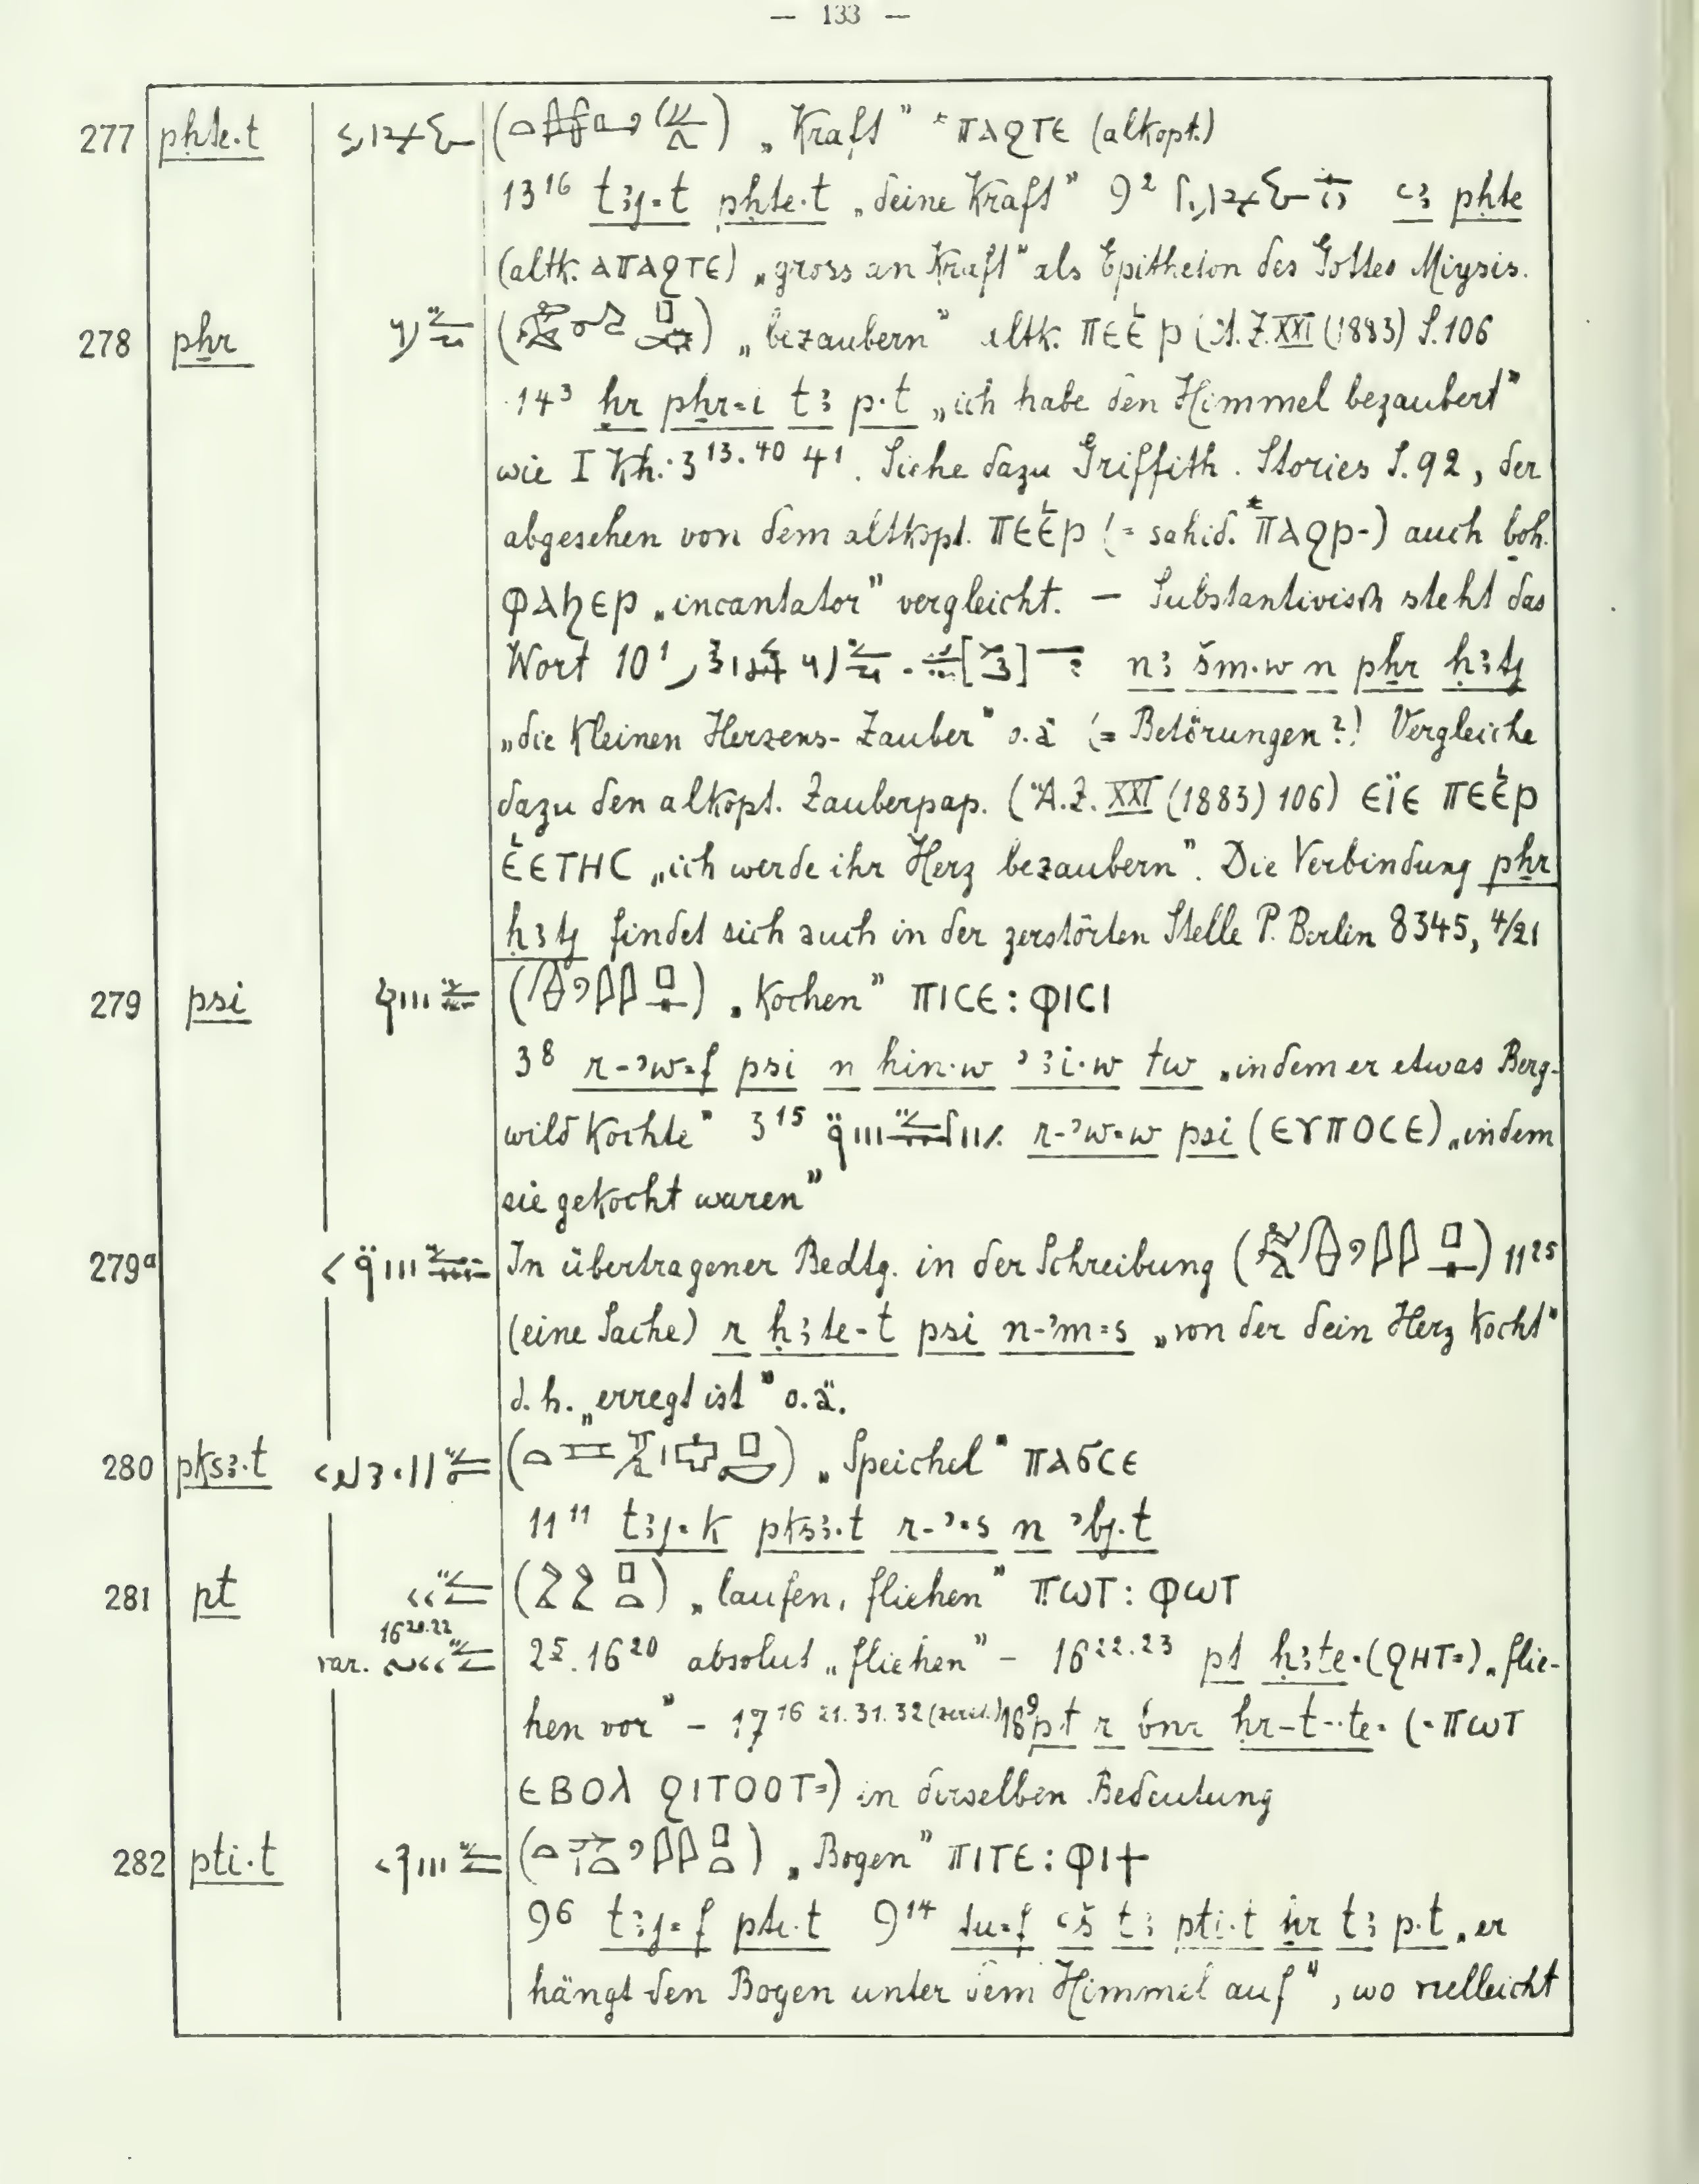 — 133 —
277 pḥte.t „Kraft" *ⲡⲁϩⲧⲉ (altkopt.)
13¹⁶ tꜣj⸗t pḥte.t „deine Kraft" 9² ꜥꜣ pḥte
(altk. ⲁⲡⲁϩⲧⲉ) „gross an Kraft" als Epitheton des Gottes Miysis.
278 pḫr „bezaubern" altk. ⲡⲉⲉ̇ⲣ (Ä.Z. XXI (1883) S. 106
14³ ḫr pḫr⸗i tꜣ p.t „ich habe den Himmel bezaubert"
wie I Kh. 3¹³·⁴⁰ 4¹. Siehe dazu Griffith. Stories S. 92, der
abgesehen von dem altkopt. ⲡⲉⲉ̇ⲣ (= sahid. *ⲡⲁϩⲣ-) auch boh.
ⲫⲁϧⲉⲣ „incantator" vergleicht. — Substantivisch steht das
Wort 10¹ nꜣ šm.w n pḫr ḥꜣtj
„die kleinen Herzens-Zauber" o.ä (= Betörungen?) Vergleiche
dazu den altkopt. Zauberpap. (Ä.Z. XXI (1883) 106) ⲉⲓ̈ⲉ ⲡⲉⲉ̇ⲣ
ⲉ̇ⲉⲧⲏⲥ „ich werde ihr Herz bezaubern". Die Verbindung pḫr
ḥꜣtj findet sich auch in der zerstörten Stelle P. Berlin 8345, 4/21
279 psi „kochen" ⲡⲓⲥⲉ : ⲫⲓⲥⲓ
3⁸ r-ʾw⸗f psi n hin.w ʾꜣi.w tw „indem er etwas Berg-
wild kochte" 3¹⁵ r-ʾw⸗w psi (ⲉⲩⲡⲟⲥⲉ) „indem
sie gekocht waren"
279ᵃ In übertragener Bedtg. in der Schreibung 11²⁵
(eine Sache) r ḥꜣte-t psi n-ʾm⸗s „von der dein Herz kocht"
d.h. „erregt ist" o.ä.
280 pksꜣ.t „Speichel" ⲡⲁϭⲥⲉ
11¹¹ tꜣj⸗k pksꜣ.t r-ʾ⸗s n ʾbj.t
281 pt „laufen, fliehen" ⲡⲱⲧ : ⲫⲱⲧ
var. 16²⁰·²² 2⁵. 16²⁰ absolut „fliehen" – 16²²·²³ pt ḥꜣte⸗ (ϩⲏⲧ⸗) „flie-
hen vor" – 17¹⁶ ²¹·³¹·³² (zerst.) 18⁹ pt r bnr ḥr-t-.te⸗ (⸗ ⲡⲱⲧ
ⲉⲃⲟⲗ ϩⲓⲧⲟⲟⲧ⸗) in derselben Bedeutung
282 pti.t „Bogen" ⲡⲓⲧⲉ : ⲫⲓϯ
9⁶ tꜣj⸗f pti.t 9¹⁴ tu⸗f ꜥš tꜣ pti.t ẖr tꜣ p.t „er
hängt den Bogen unter dem Himmel auf", wo vielleicht